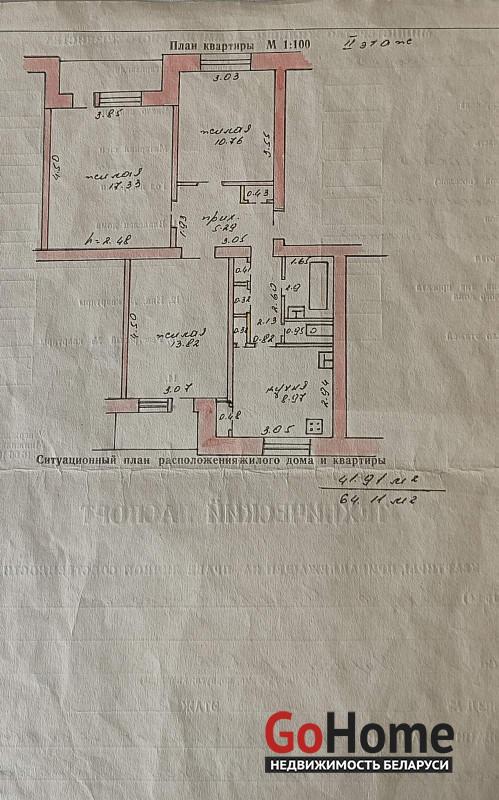 План квартиры М 1:100
II этаж
3.03
3.85
жилая
10.76
3.55
4.50
жилая
17.33
0.43
1.93
прих.
5.29
h=2.48
3.05
1.65
0.41
2.60
2.9
0.32
4.50
жилая
13.82
0.32
2.13
0.95
0.82
3.07
кухня
8.97
2.94
0.48
3.05
Ситуационный план расположения жилого дома и квартиры
41.91 м2
64.11 м2
ТЕХНИЧЕСКИЙ ПАСПОРТ
ЭТАЖ
GoHome
НЕДВИЖИМОСТЬ БЕЛАРУСИ